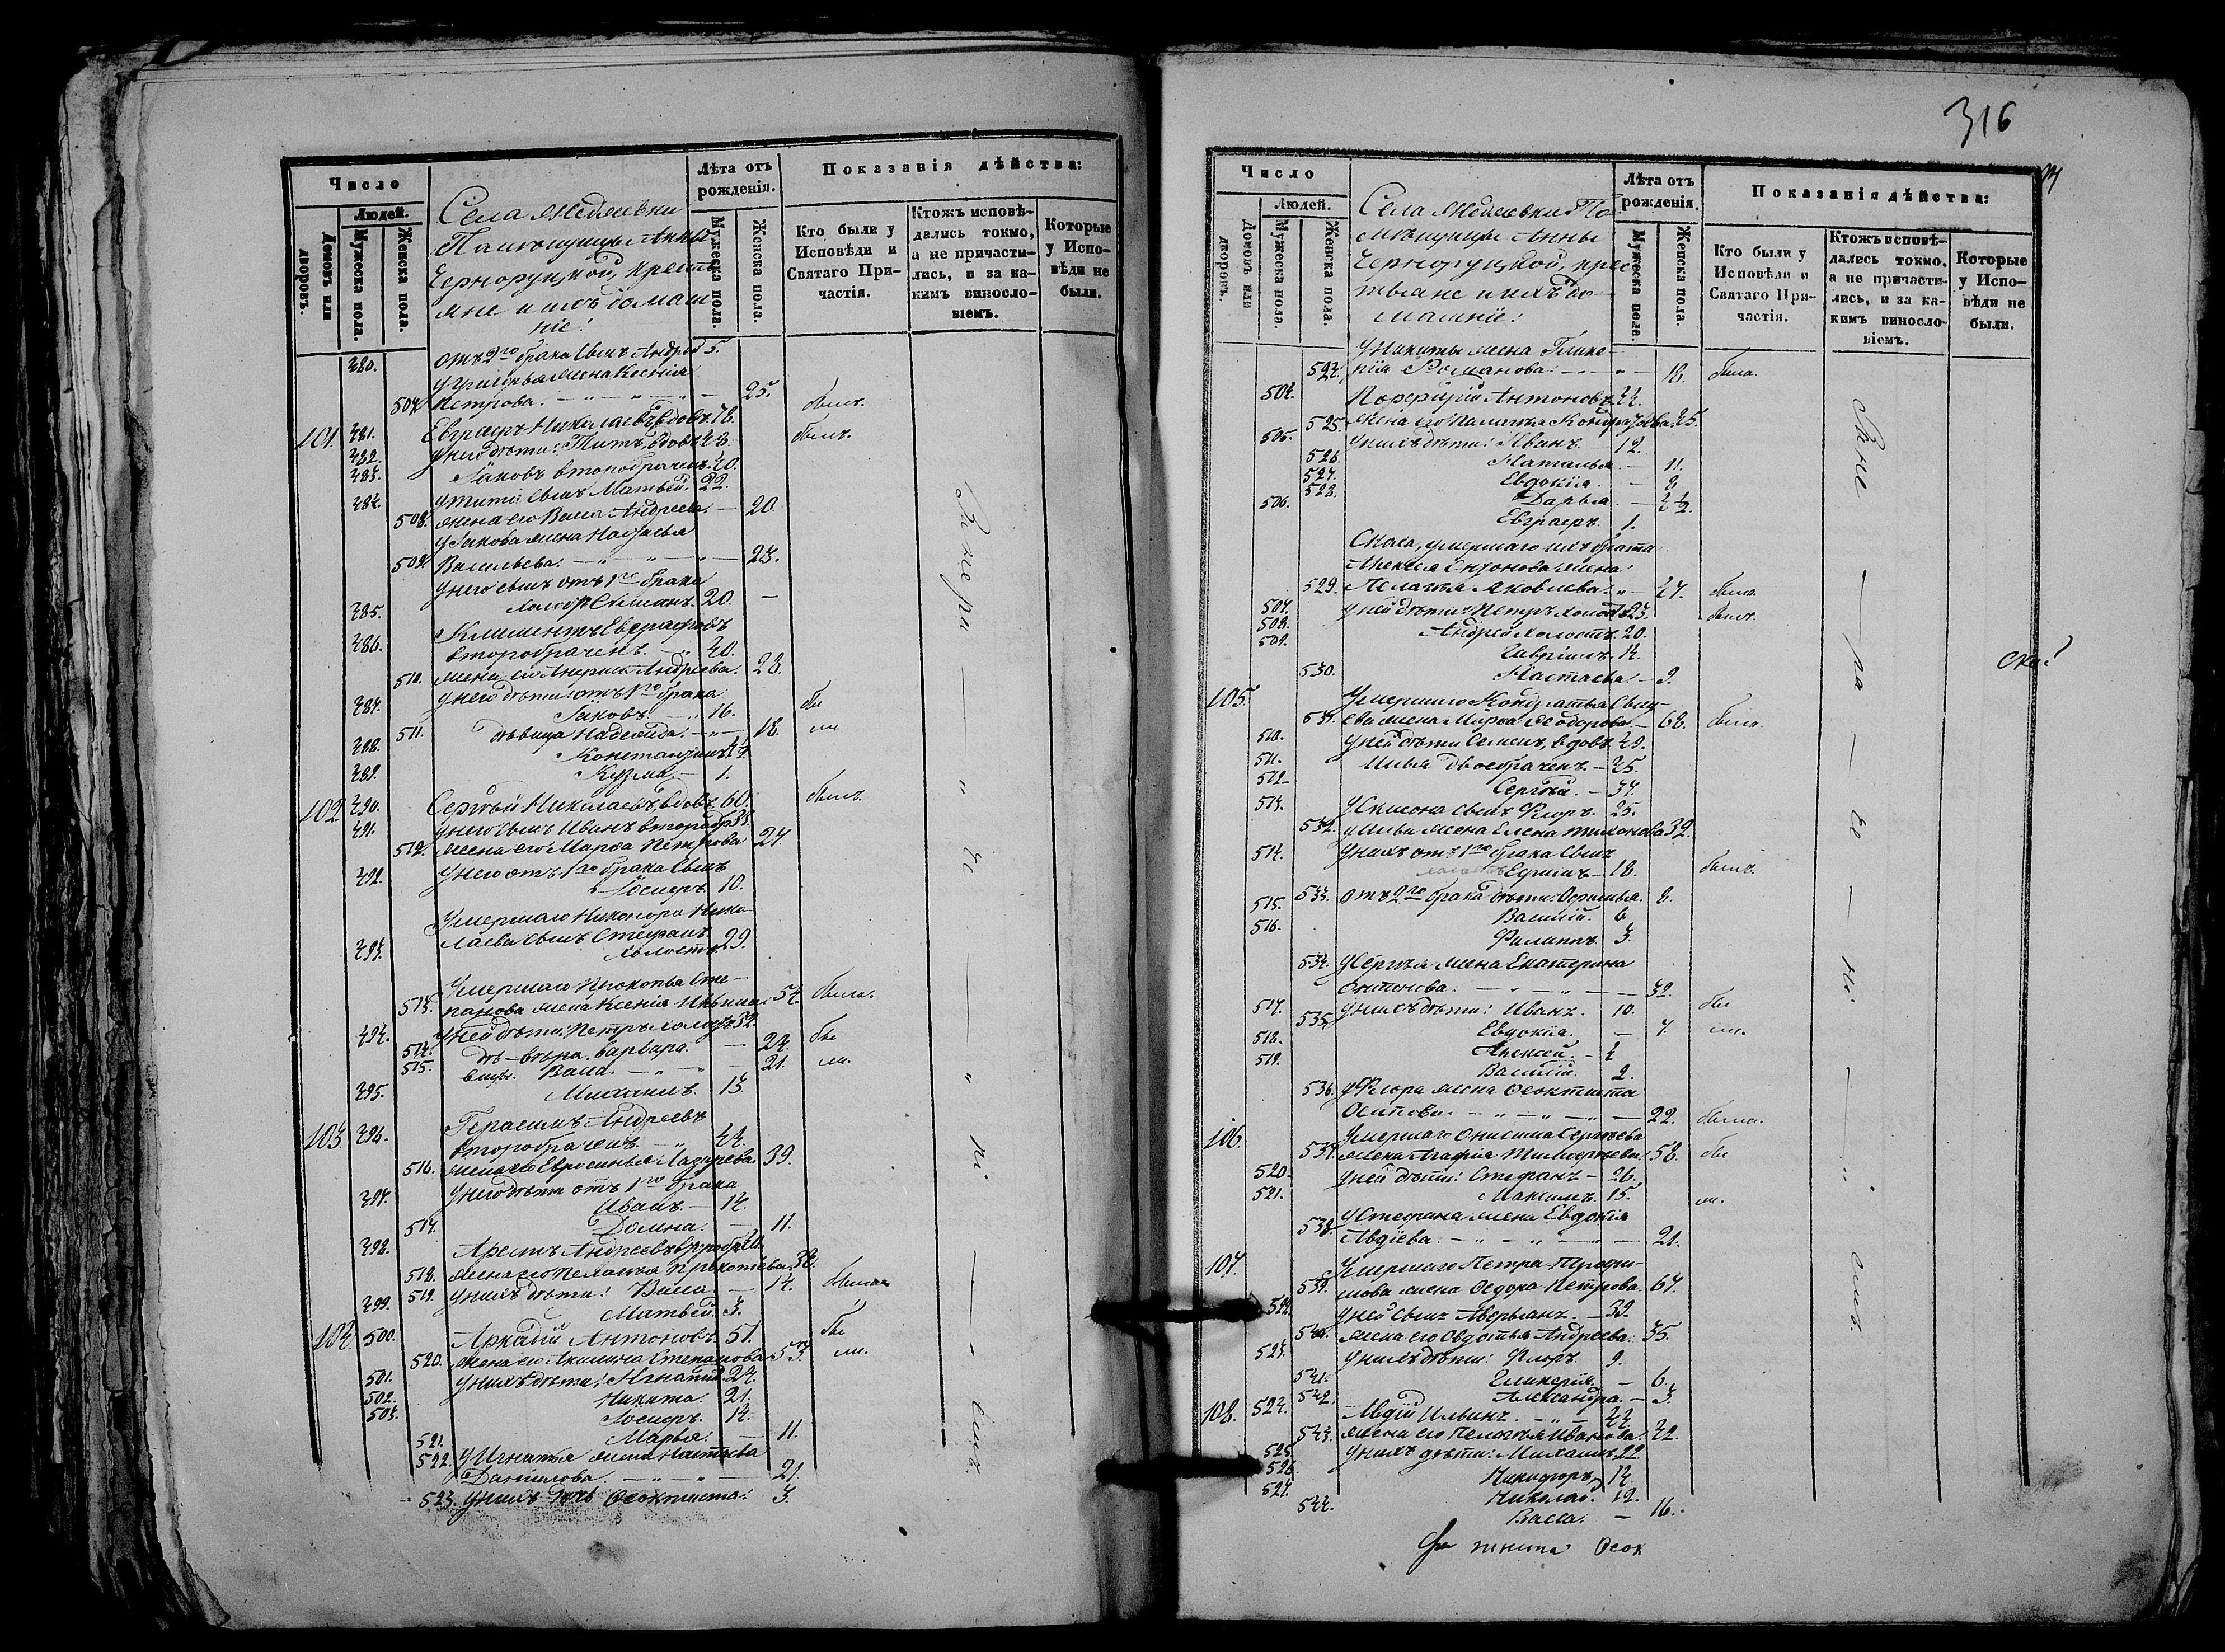 Число
Людей.
Домовъ или дворовъ.
Мужеска пола.
Женска пола.
Села
Помѣщицы Анны
Черноруцкой, кресть
яне и ихъ домаш
ніе:
Лѣта отъ рожденія.
Мужеска пола.
Женска пола.
Показанія дѣйства:
Кто были у Исповѣди и Святаго Причастія.
Ктожъ исповѣдались токмо, а не причастились, и за какимъ винословіемъ.
Которые у Исповѣди не были.
480. отъ 2го брака сынъ Андрей 5.
у Григорья жена Ксенія
507. Петрова. 25. былъ.
101. 481. Евграфъ Николаевъ, вдовъ. 76. былъ.
482. у него дѣти: Титъ, вдовъ 43.
483. Іаковъ второбраченъ. 40.
484. у Тита сынъ Матвей. 22.
508. жена его Васса Андреева. 20.
у Іакова жена Наталья
509. Васильева. 23.
у него сынъ отъ 1го брака
485. холостъ Стефанъ. 20.
486. Климентъ Евграфовъ
второбраченъ. 40.
510. жена его Андреева. 28.
у него дѣти отъ 1го брака
487. Іаковъ. 16. бы
511. дѣвица Надежда. 18. ли
488. Константинъ
489. Кузма. 1.
102. 490. Сергѣй Николаевъ, вдовъ. 60. былъ.
491. у него сынъ Иванъ второбр. 33.
512. жена его Марѳа Петрова 27.
у него отъ 1го брака сынъ
492. Іосифъ. 10.
Умершаго Никонора Нико
лаева сынъ Стефанъ.
493. холостъ. 29.
Умершаго Прокопья Сте-
513. панова жена Ксенія Ильина. 54. была.
494. у ней дѣти: Петръ холостъ 32.
514. дѣ- Варвара. 24. бы
515. вицы. Васса. 21. ли.
495. Михаилъ. 13.
103. 496. Герасимъ Андреевъ
второбраченъ. 44.
516. жена его Евросинья Лазарева. 39.
у него дѣти отъ 1го брака
497. Иванъ. 14.
517. Домна. 11.
498. Андреевъ
518. жена его Пелагея Прокопьева. 38.
519. у нихъ дѣти: Васса. 14. была.
499. Матвей. 3.
104. 500. Аркадій Антоновъ. 51. бы
520. жена его Акилина Степанова. 53. ли.
501. у нихъ дѣти: Игнатій. 24.
502. Никита. 21.
503. Іосифъ. 14.
521. Марья. 11.
522. у Игнатья жена Настасья
Данилова. 21.
523. у нихъ дочь Ѳеоктиста. 3.
316
Число
Людей.
Домовъ или дворовъ.
Мужеска пола.
Женска пола.
Села По
мѣщицы Анны
Черноруцкой, крес
тьяне и ихъ до
машніе:
Лѣта отъ рожденія.
Мужеска пола.
Женска пола.
Показанія дѣйства:
Кто были у Исповѣди и Святаго Причастія.
Ктожъ исповѣдались токмо, а не причастились, и за какимъ винословіемъ.
Которые у Исповѣди не были.
у Никиты жена Глике-
524. рія Романова. 18. была.
504. Порфирій Антоновъ. 44.
525. жена его Палагея 45.
505. у нихъ дѣти: Иванъ. 12.
526. Наталья. 11.
527. Евдокія. 8.
528. Дарья.
506. Евграфъ. 1.
Снаха, умершаго ихъ брата
Алексѣя Антонова жена
529. Пелагея Яковлева. 47. была.
507. у ней дѣти: Петръ холостъ 23. былъ.
508. Андрей холостъ. 20.
509. Гавріилъ. 14.
530. Настасья. 9.
105. Умершаго Кондратья
531. жена Марѳа Ѳеодорова. 68. была.
510. у ней дѣти Семенъ, вдовъ. 49.
511. Илья двоебраченъ. 45.
512. Сергѣй. 37.
513. у Симеона сынъ Флоръ. 25.
532. у Ильи жена Елена Тихонова 39.
514. у нихъ отъ 1го брака сынъ
холостъ Ефимъ. 18. былъ.
533. отъ 2го брака дѣти: 8.
515. Василій. 6.
516. Филиппъ. 3.
534. у Сергѣя жена Екатерина
Антонова. 32.
517. у нихъ дѣти: Иванъ. 10. бы
535. Евдокія. 7. ли.
518. Алексѣй. 4
519. Василій. 2.
536. у Флора жена Ѳеоктиста
Осипова. 22. была.
106. Умершаго Онисима Сергѣева
537. жена Агафія Тимофѣева. 58. бы
520. у ней дѣти: Стефанъ 26.
521. Максимъ. 15. ли.
538. у Стефана жена Евдокія
Авдіева. 21.
107. Умершаго Петра
539. жена Ѳедора Петрова. 67.
522. у ней сынъ Аверьянъ. 39.
540. жена его Андреева. 35.
523. у нихъ дѣти: Флоръ. 9.
541. Гликерія. 6.
542. Александра. 3.
108. 524. Авдій Ильинъ. 44.
543. жена его Пелагея Иванова. 42.
525. у нихъ дѣти: Михаилъ 22
526. Никифоръ, 14
527. Николай. 12.
544. Васса. 16.